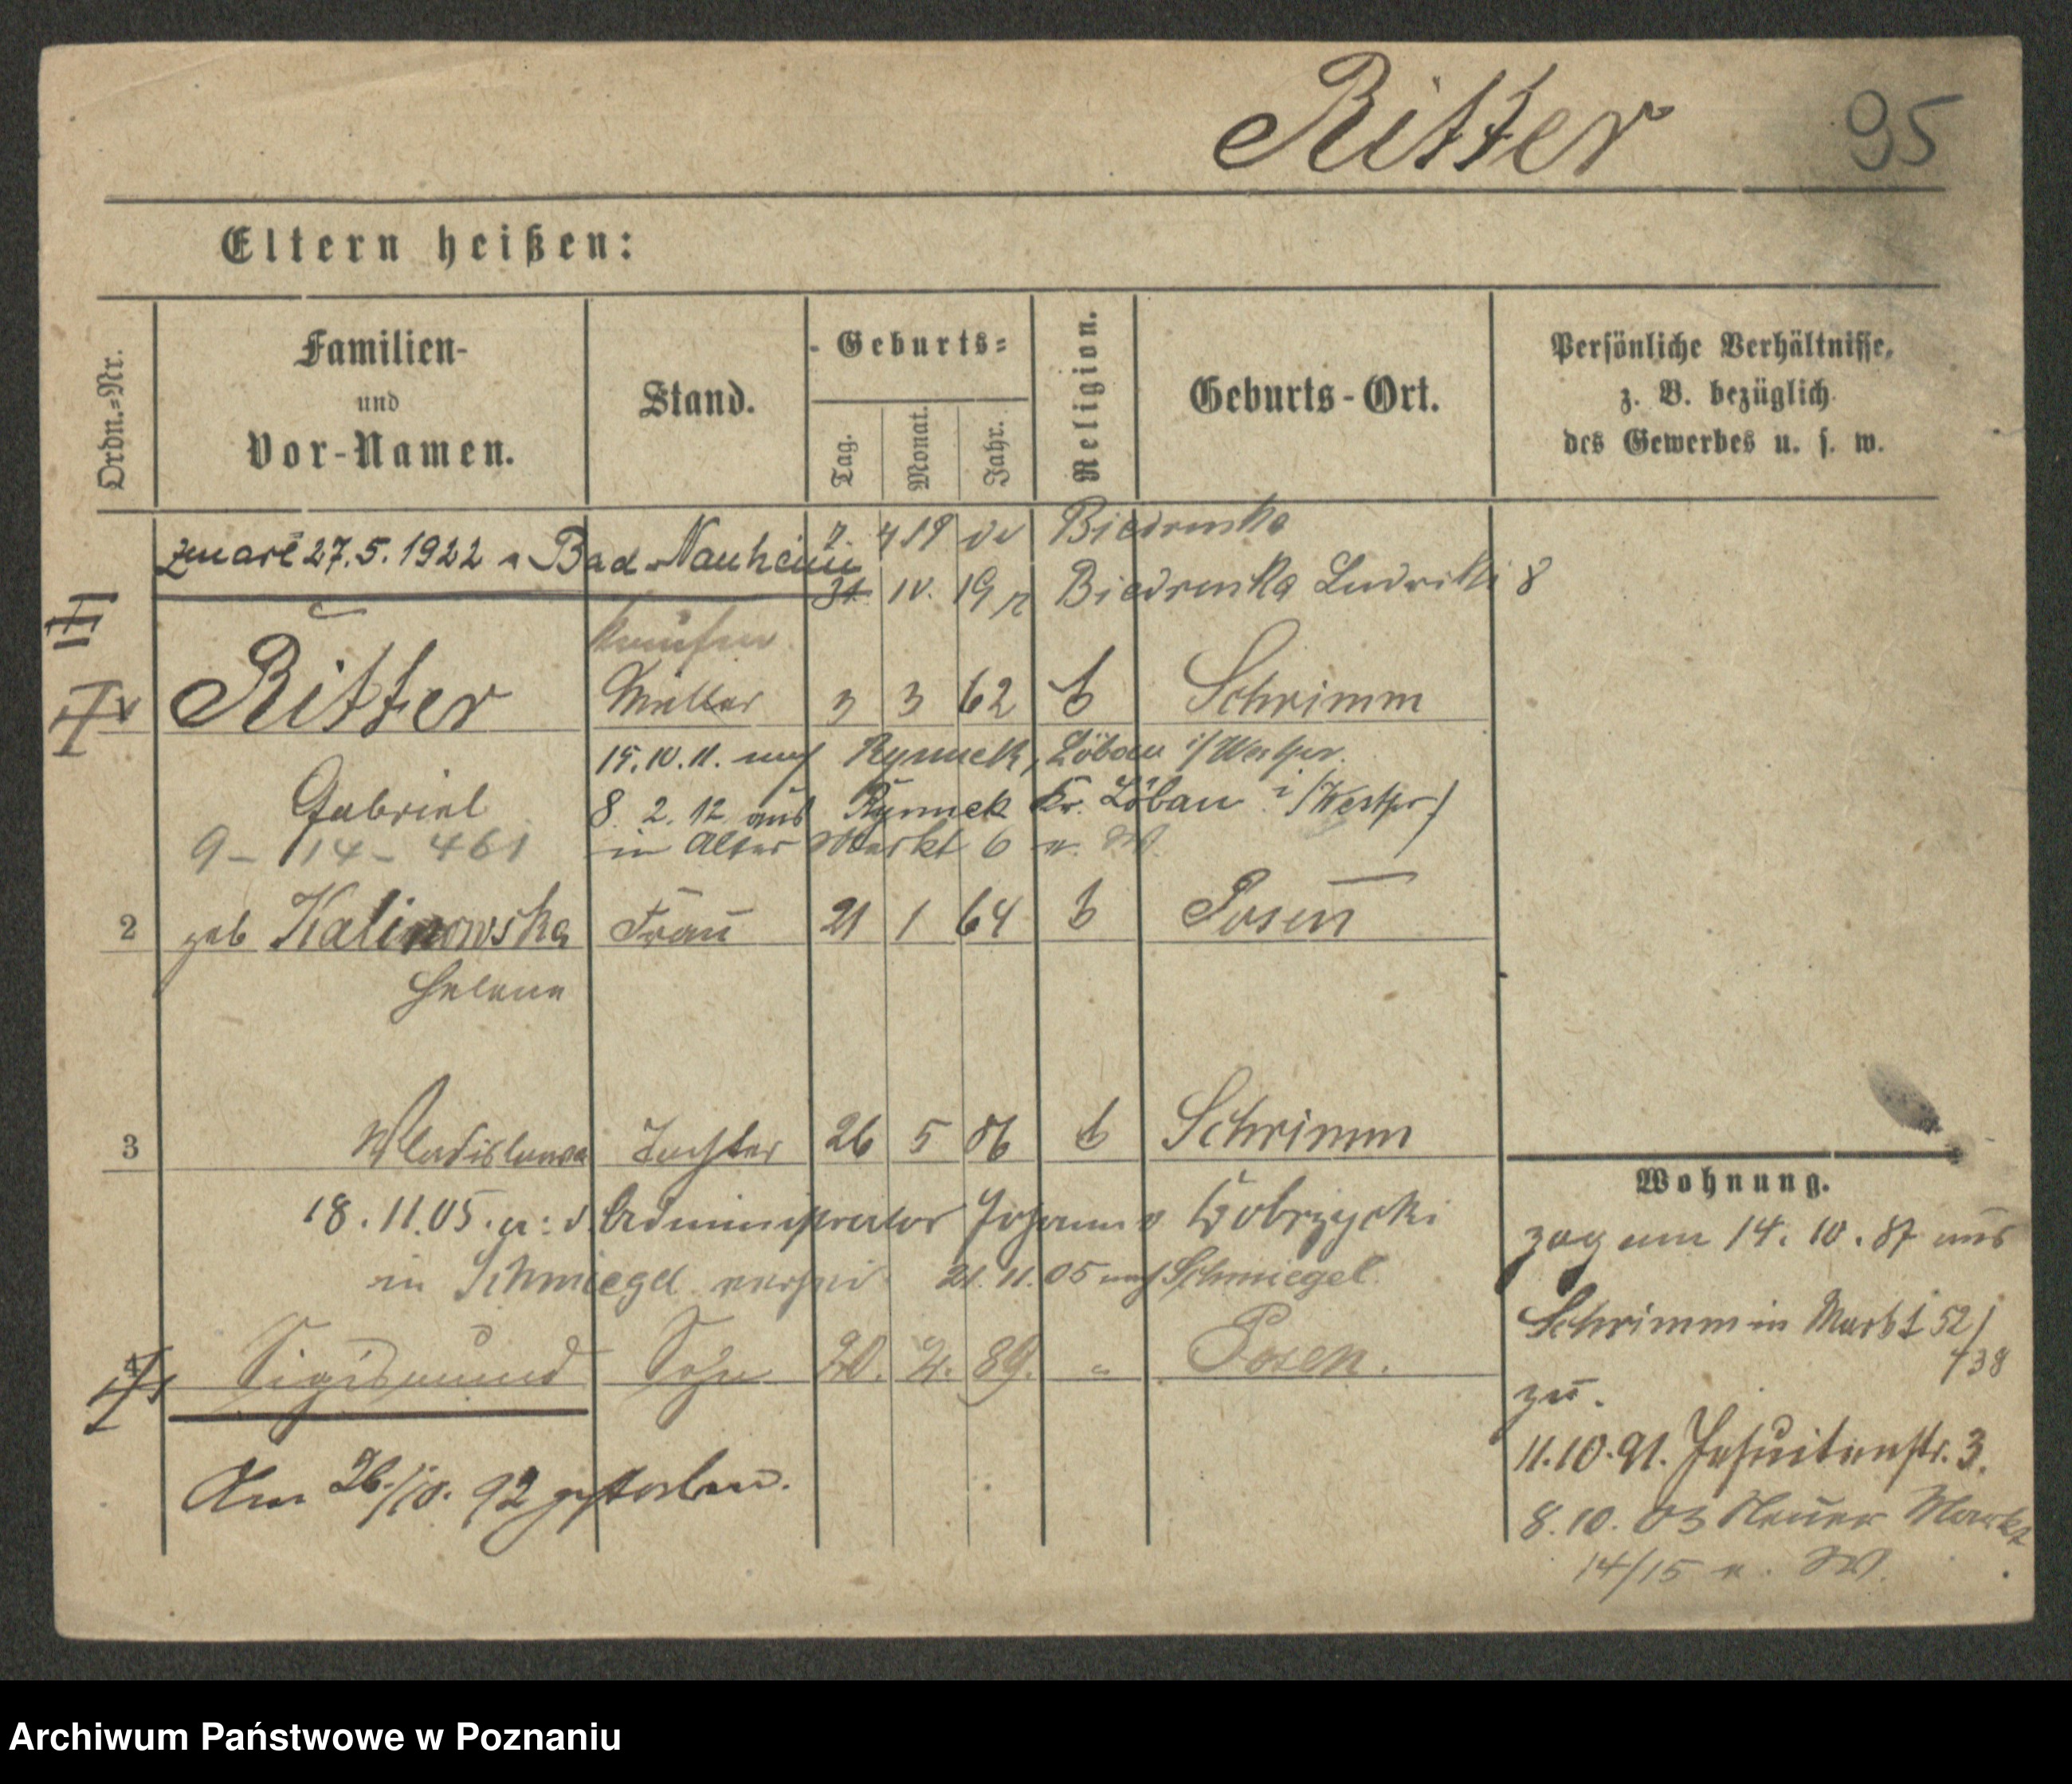 Ritter 95
Eltern heißen:
Ordn.-Nr.
Familien-
und
Vor-Namen.
Stand.
Geburts-
Tag.
Monat.
Jahr.
Religion.
Geburts-Ort.
Persönliche Verhältnisse,
z. B. bezüglich
des Gewerbes u. s. w.
zmarł 27.5.1922 w Bad-Nauheim
7. 4 19 Biedrusko
31. IV. 19 Biedrusko
Ritter Müller 3 3 62 Schrimm
15.10.11. nach Rynnek, Löbau i/Westpr.
Gabriel 8. 2. 12 aus Rynnek Kr. Löbau i/Westpr.
9 - 14 - 461 in Alter Markt 6
2 geb Kalinowska Frau 21 1 64 Posen
Helena
3 Wladislawa Tochter 26 5 86 Schrimm
18.11.05. Administrator Johann v Dobrzycki
in Schmiegel 21.11.05 nach Schmiegel
Sigismund Sohn 20. 4. 89. " Posen.
Am 26./10. 92 gestorben.
Wohnung.
zog am 14. 10. 87 aus
Schrimm in Markt 52/
38
zu.
11.10.91. Jesuitenstr. 3.
8.10. 03 Neuer Markt
14/15
Archiwum Państwowe w Poznaniu